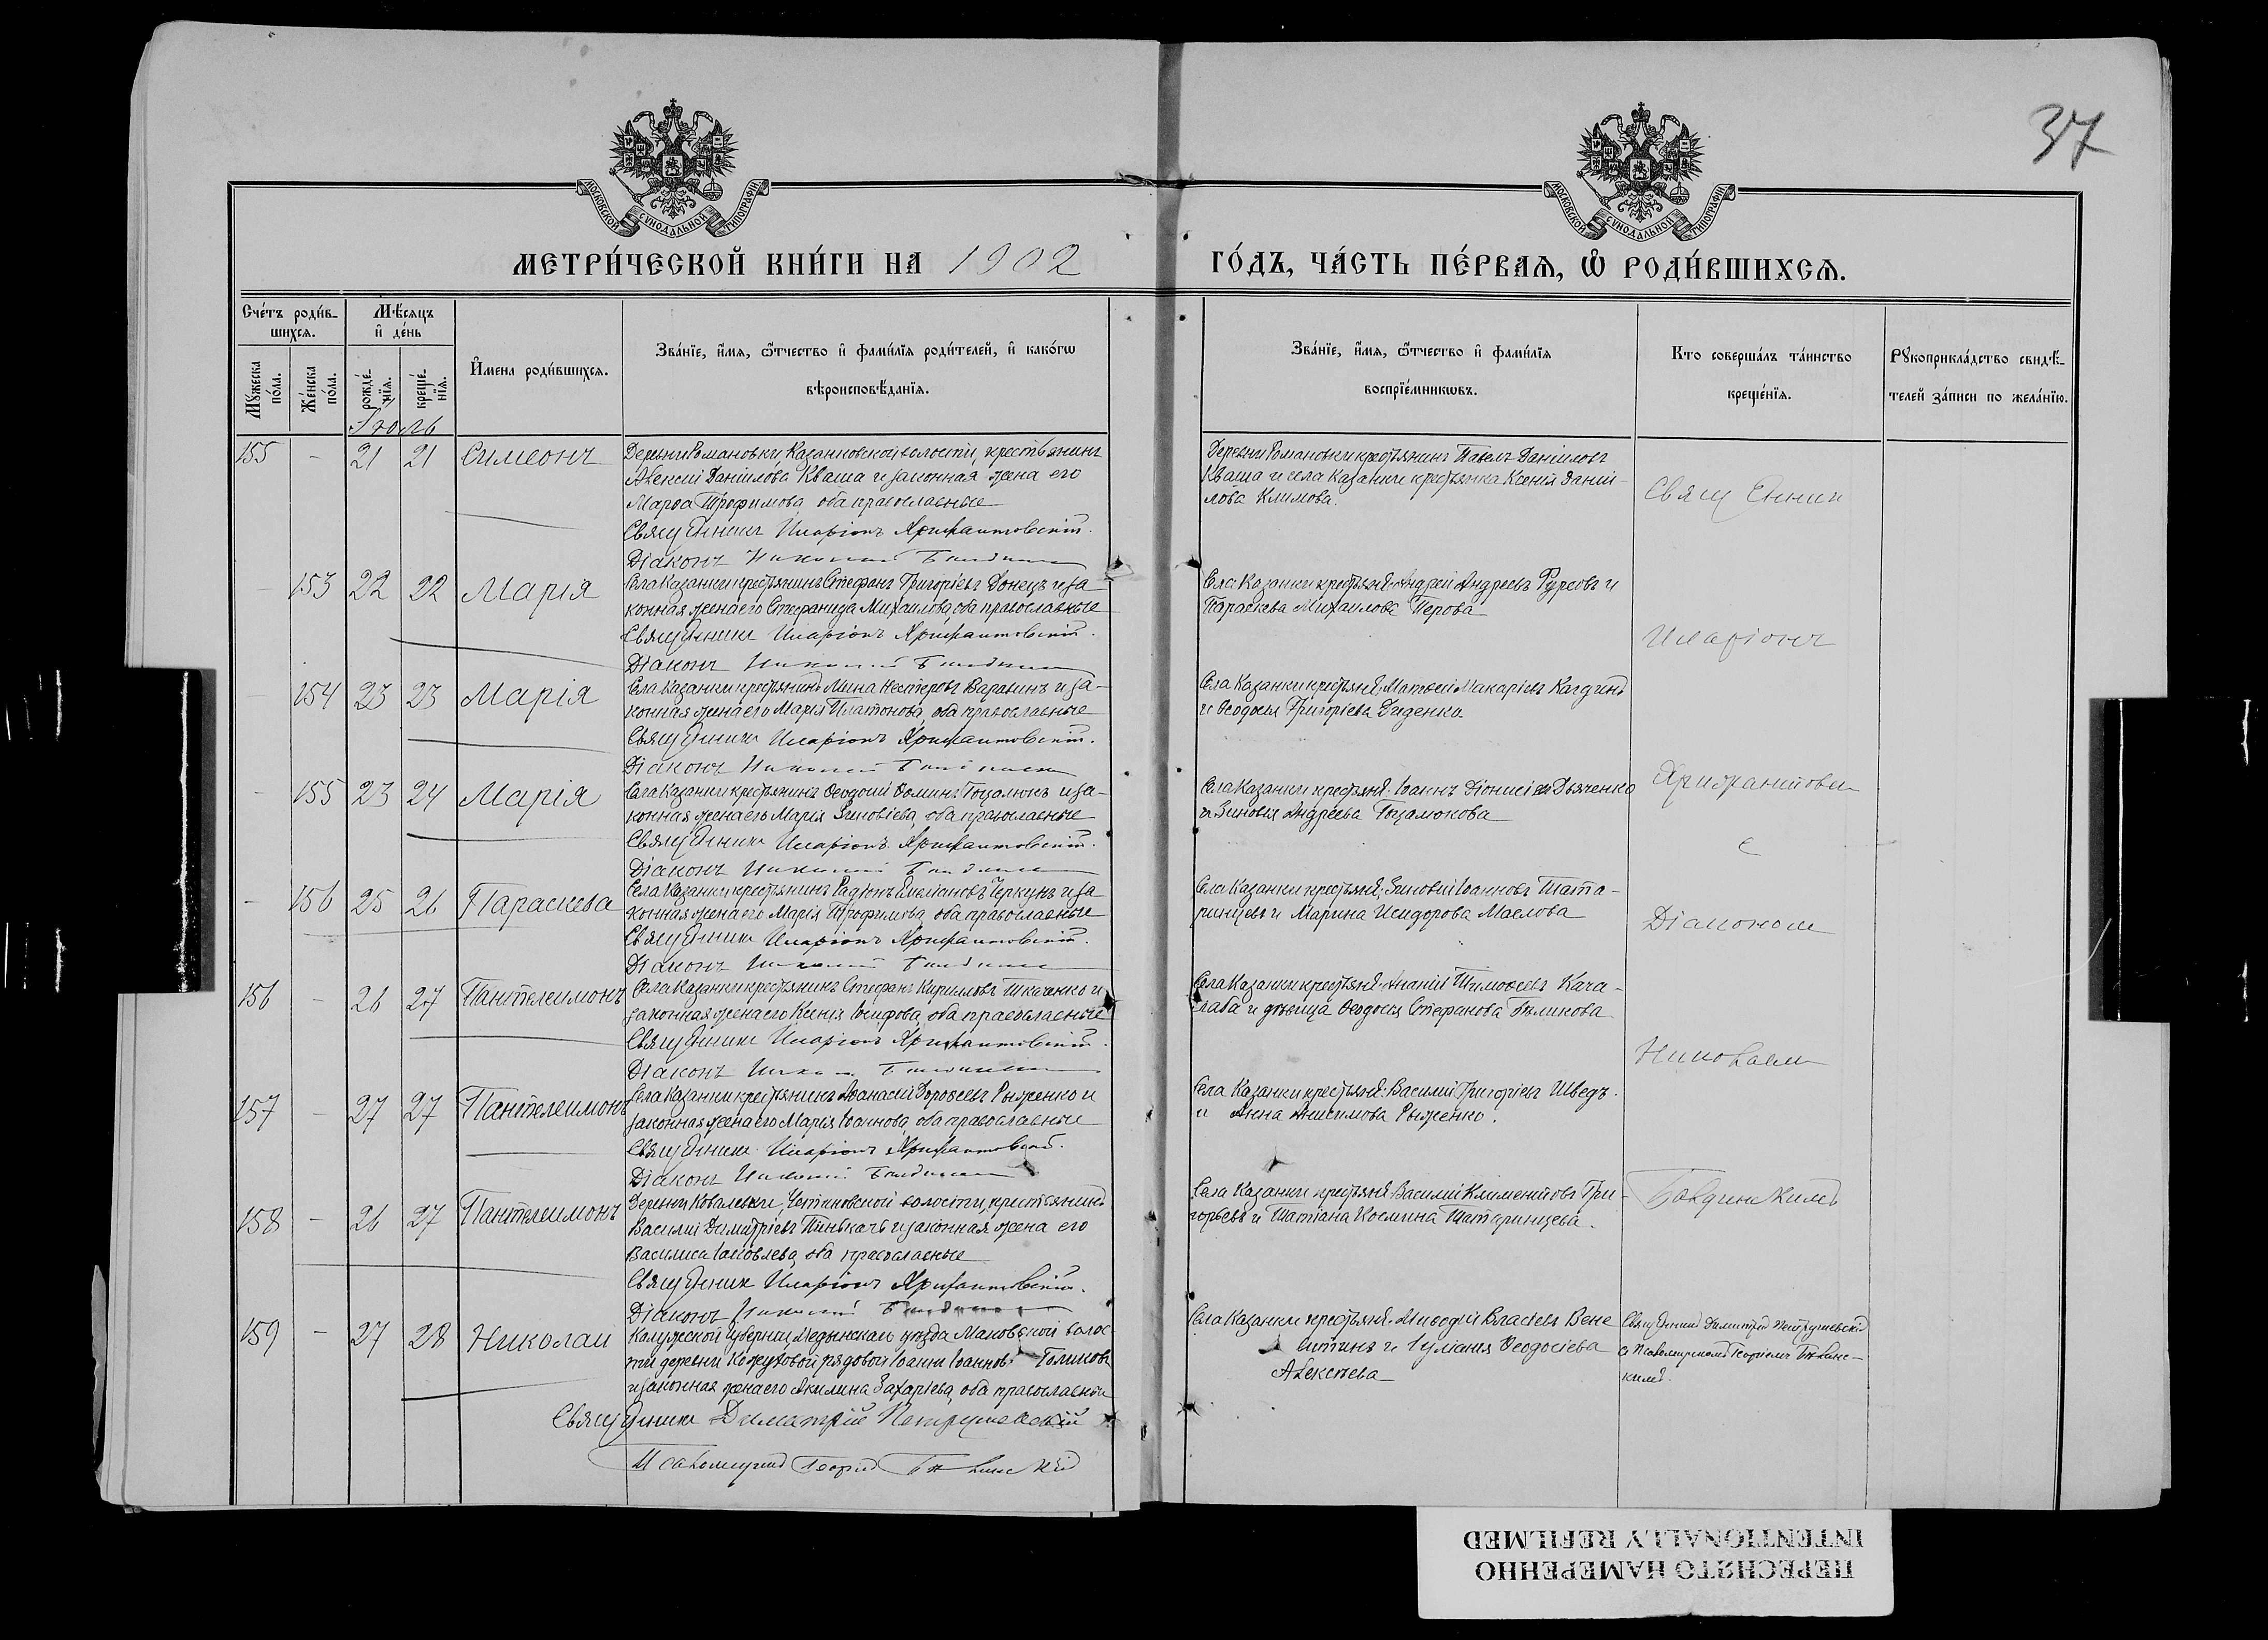 37
МОСКОВСКОЙ СѴНОДАЛЬНОЙ ТИПОГРАФІИ
МОСКОВСКОЙ СѴНОДАЛЬНОЙ ТИПОГРАФІИ
МЕТРИ́ЧЕСКОЙ КНИ́ГИ НА 1902
ГО́ДЪ, ЧА́СТЬ ПЕ́РВАѦ, Ѽ РОДИ́ВШИХСѦ.
Сче́тъ роди́в-
шихсѧ.
Мꙋ́жеска по́ла.
Же́нска по́ла.
Мѣ́сяцъ
и҆ де́нь
рожде́-нїѧ.
креще́-нїѧ.
Іюль
И҆мена роди́вшихсѧ.
Зва́нїе, и҆́мѧ, ѻ҆́тчество и҆ фами́лїѧ роди́телей, и҆ како́гѡ
вѣроисповѣ́данїѧ.
Зва́нїе, и҆́мѧ, ѻ҆́тчество и҆ фами́лїѧ
воспрїе́мникѡвъ.
Кто соверша́лъ та́инство
креще́нїѧ.
Рꙋкоприкла́дство свидѣ́-
телей за́писи по жела́нїю.
155 - 21 21 Симеонъ
Деревни Романовки Казанковской волости, крестьянинъ
Алексій Даніиловъ Кваша и законная жена его
Марѳа Трофимова, оба православные
Священникъ Иларіонъ Хрисантовскій.
Діаконъ Николай
Деревни Романовки крестьянинъ Павелъ Даніиловъ
Кваша и села Казанки крестьянка Ксенія Даніи-
лова Климова.
Священник
- 153 22 22 Марія
Села Казанки крестьянинъ Стефанъ Григорьевъ Донецъ и за-
конная жена его Стефанида Михаилова, оба православные
Священникъ Иларіонъ Хрисантовскій.
Діаконъ Николай
Села Казанки крестьяне: Андрей Андреевъ и
Параскева Михаилова Перова
Иларіонъ
- 154 23 23 Марія
Села Казанки крестьянинъ Мина Нестеровъ и за-
конная жена его Марія Платонова, оба православные
Священникъ Иларіонъ Хрисантовскій.
Діаконъ Николай
Села Казанки крестьяне: Матѳей Макаріевъ
и Ѳеодосія Григоріева Диденко.
- 155 23 24 Марія
Села Казанки крестьянинъ Ѳеодосій Ѳоминъ Гоцалюкъ и за-
конная жена его Марія Зиновіева, оба православные
Священникъ Иларіонъ Хрисантовскій.
Діаконъ Николай
Села Казанки крестьяне: Іоаннъ Діонисіевъ Дьяченко
и Зиновія Андреева Гоцалюкова
с
- 156 25 26 Параскева
Села Казанки крестьянинъ Родіонъ Черкунъ и за-
конная жена его Марія Трофимова, оба православные
Священникъ Иларіонъ Хрисантовскій.
Діаконъ Николай
Села Казанки крестьяне: Зиновій Іоанновъ Тата-
ринцевъ и Марина Исидорова Маслова
Діаконом
156 - 26 27 Пантелеимонъ
Села Казанки крестьянинъ Стефанъ Кирилловъ Ткаченко и
законная жена его Ксенія Іосифова, оба православные
Священникъ Иларіонъ Хрисантовскій.
Діаконъ Николай
Села Казанки крестьяне: Ананій Тимоѳеевъ Кача-
лаба и дѣвица Ѳеодосія Стефанова Бѣликова
Николаем
157 - 27 27 Пантелеимонъ
Села Казанки крестьянинъ Аѳанасій Дороѳеевъ Рыженко и
законная жена его Марія Іоаннова, оба православные
Священникъ Иларіонъ Хрисантовскій.
Діаконъ Николай
Села Казанки крестьяне: Василій Григоріевъ Шведъ
и Анна Анисимова Рыженко.
158 - 26 27 Пантелеимонъ
Деревни Ковалевки, волости, крестьянинъ
Василій Димитріевъ и законная жена его
Василиса Іаковлева, оба православные
Священникъ Иларіонъ Хрисантовскій.
Діаконъ Николай
Села Казанки крестьяне: Василій Климентовъ Гри-
горьевъ и Татіана Косьмина Татаринцева.
159 - 27 28 Николай
Калужской губерніи, Медынскаго уѣзда, волос-
ти деревни рядовой Іоаннъ Іоанновъ Голиковъ
и законная жена его Акилина Захаріева, оба православные
Священникъ Димитрій Петрушевскій
Псаломщикъ Георгій
Села Казанки крестьяне: Власіевъ Вене-
и Іуліанія Ѳеодосіева
Алексѣева
Священникъ Димитрій Петрушевскій
съ Псаломщикомъ Георгіемъ
ПЕРЕСНЯТО НАМЕРЕННО
INTENTIONALLY REFILMED